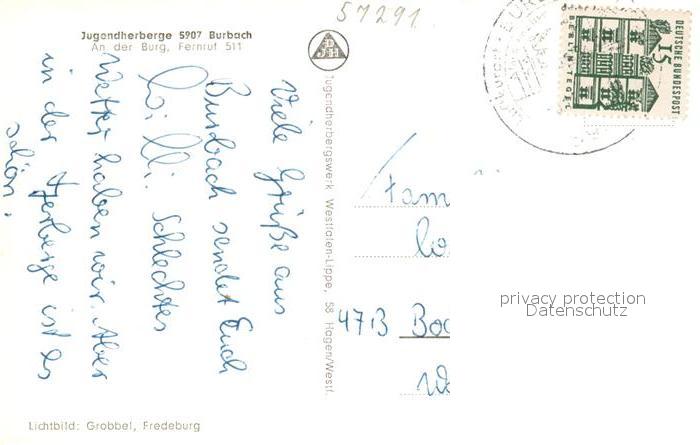 57291
Jugendherberge 5907 Burbach
An der Burg, Fernruf 511
Viele Grüße aus
Burbach sendet Euch
Willi. Schlechtes
Wetter haben wir. Aber
in der Herberge ist es
schön.
Jugendherbergswerk Westfalen-Lippe, 58 Hagen/Westf.
Fam
4713 Boc
DEUTSCHE BUNDESPOST
15
BERLIN-TEGEL
privacy protection
Datenschutz
Lichtbild: Grobbel, Fredeburg